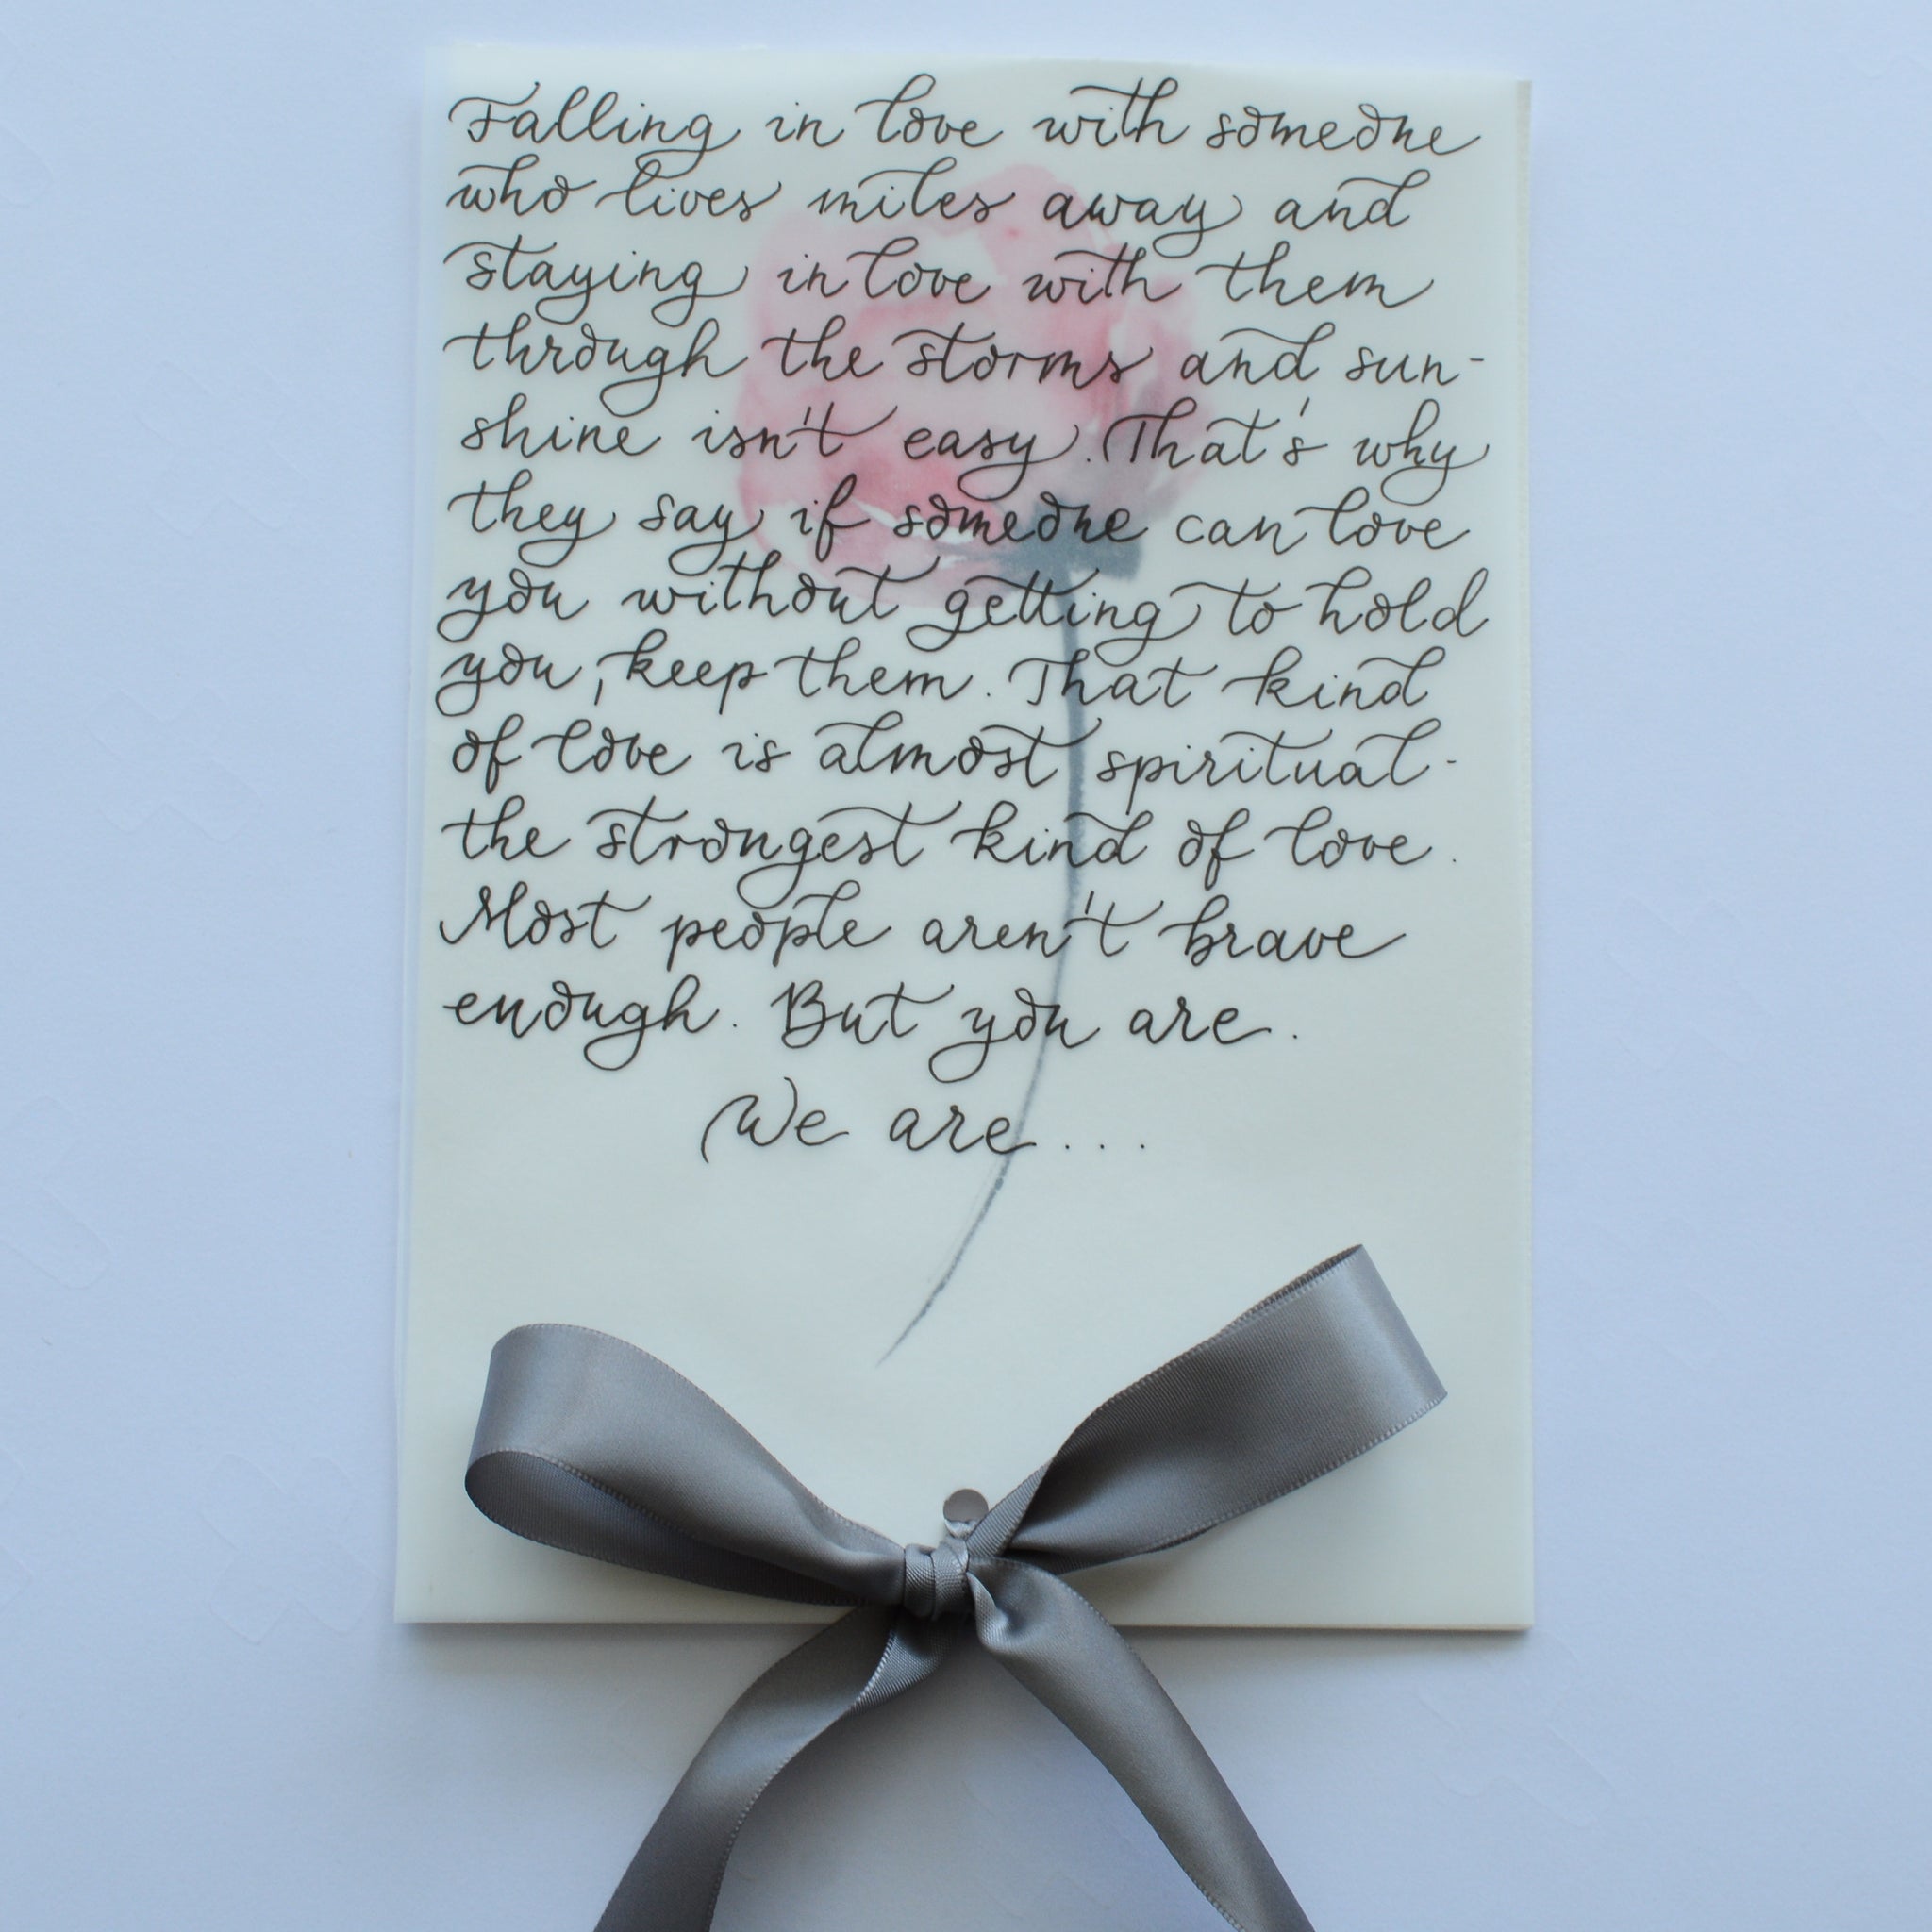 Falling in love with someone
who lives miles away and
staying in love with them
through the storms and sun-
shine isn't easy. That's why
they say if someone can love
you without getting to hold
you, keep them. That kind
of love is almost spiritual -
the strongest kind of love.
Most people aren't brave
enough. But you are.
We are...